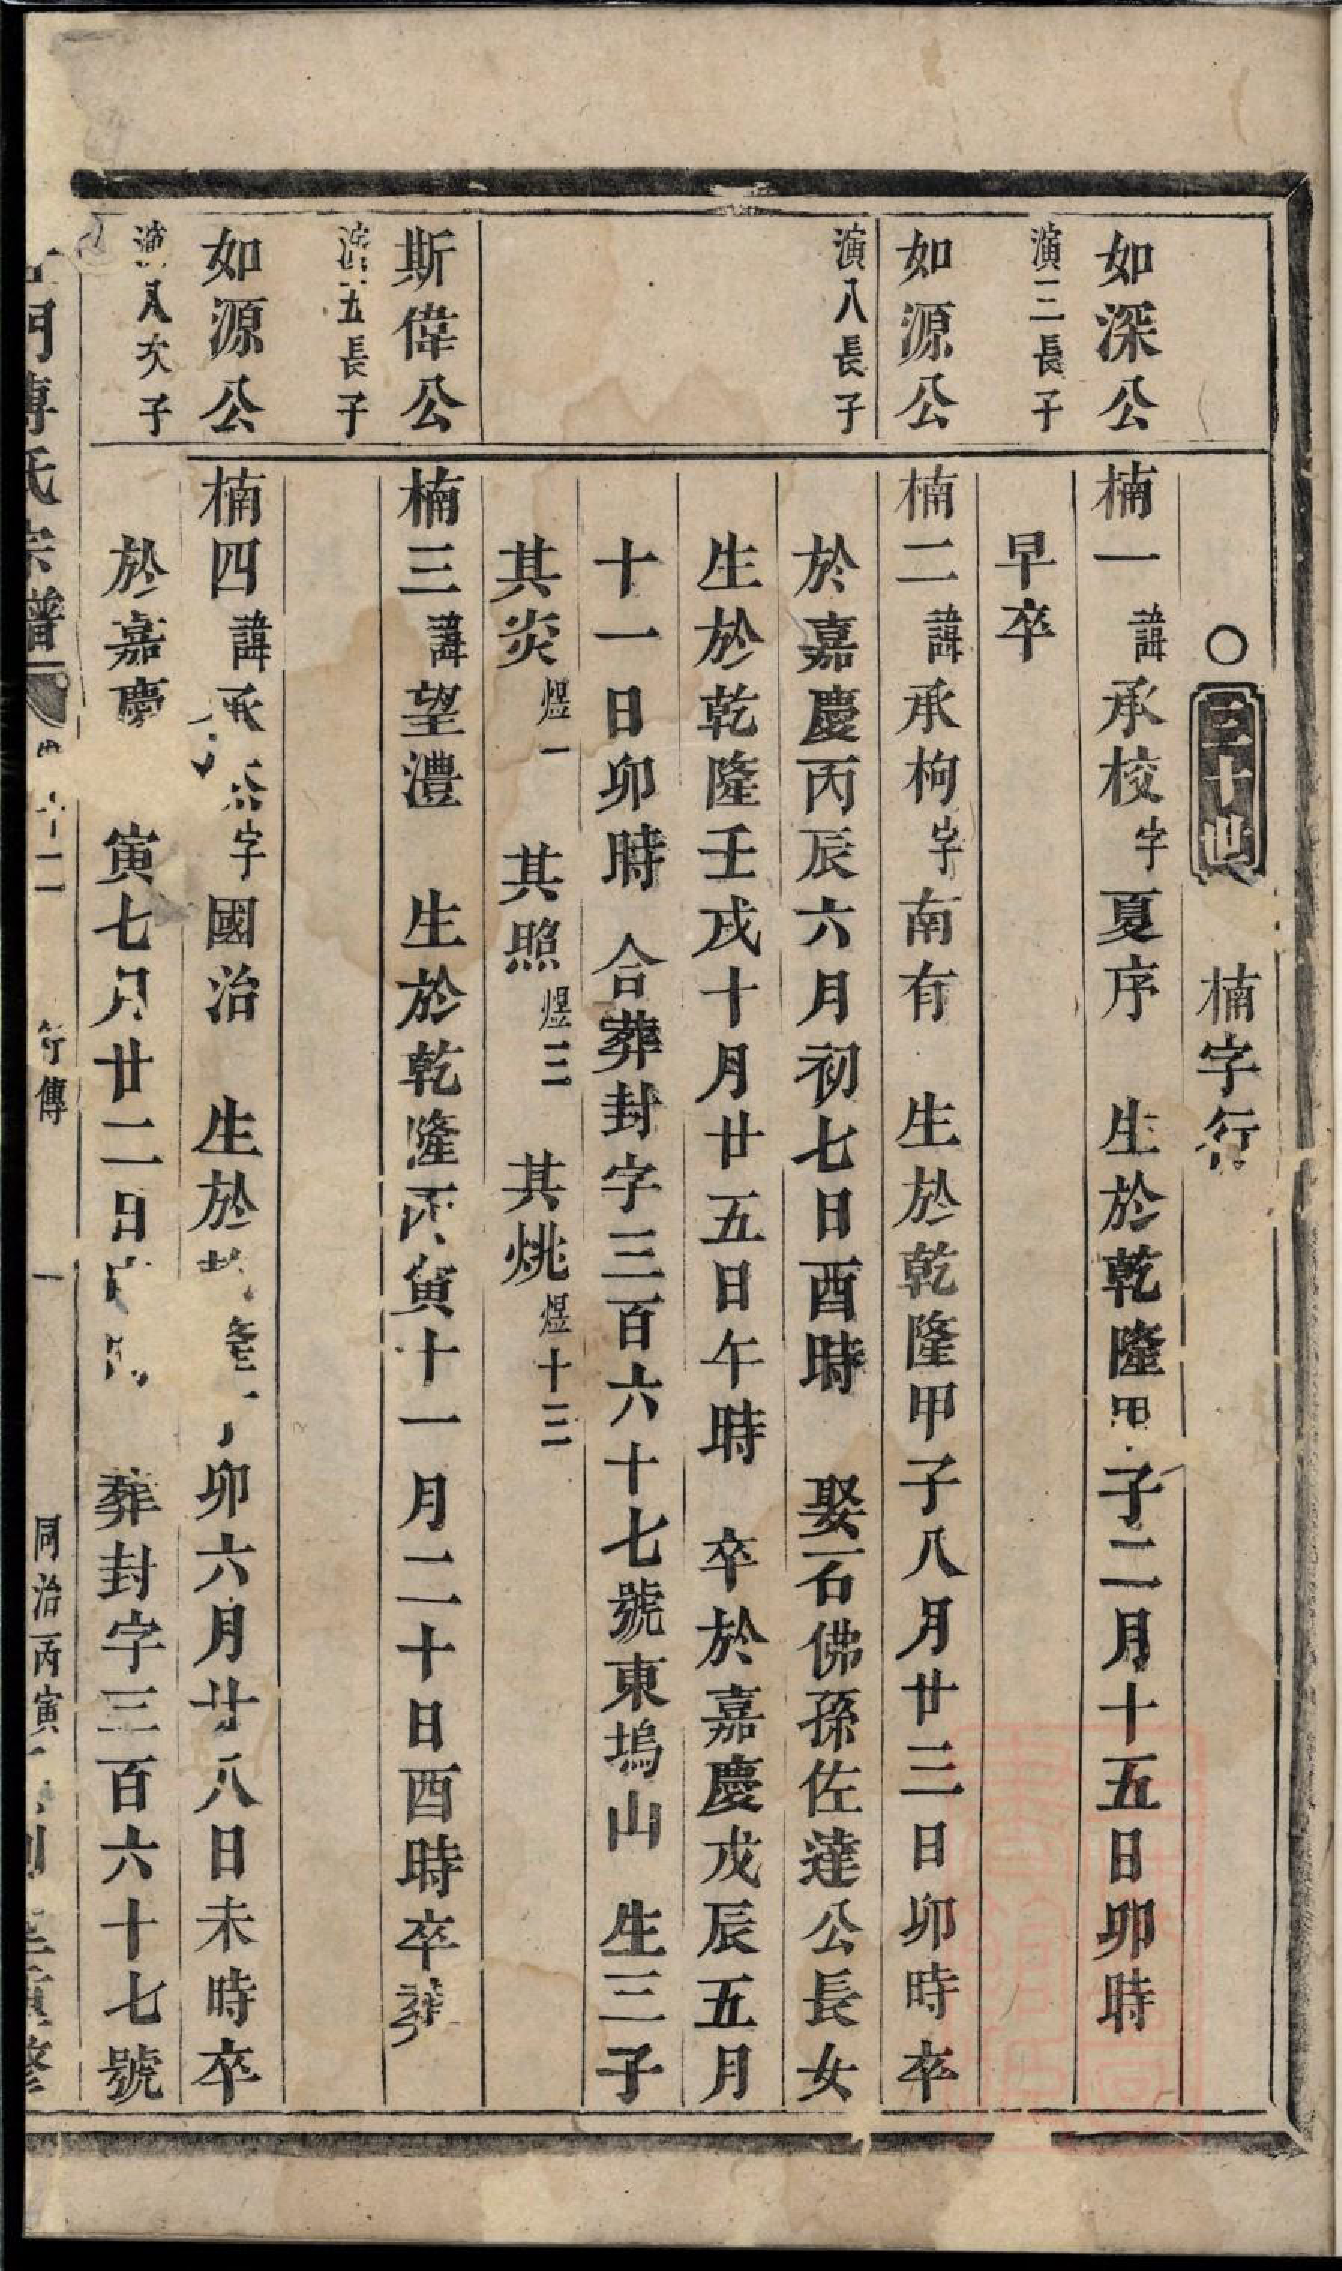 ○三十世 楠字行
如深公
演三長子
楠一諱承校字夏序 生於乾隆甲子二月十五日卯時
早卒
如源公
演八長子
楠二諱承枸字南有 生於乾隆甲子八月廿三日卯時卒
於嘉慶丙辰六月初七日酉時 娶石佛孫佐達公長女
生於乾隆壬戌十月廿五日午時 卒於嘉慶戊辰五月
十一日卯時 合葬封字三百六十七號東塢山 生三子
其炎煜一 其照煜三 其烑煜十三
斯偉公
五長子
楠三諱望澧 生於乾隆丙寅十一月二十日酉時卒葬
如源公
演八次子
楠四諱承字國治 生於隆卯六月廿八日未時卒
於嘉慶寅七月廿二日 葬封字三百六十七號
門傅氏宗譜
行傳
一
同治丙寅